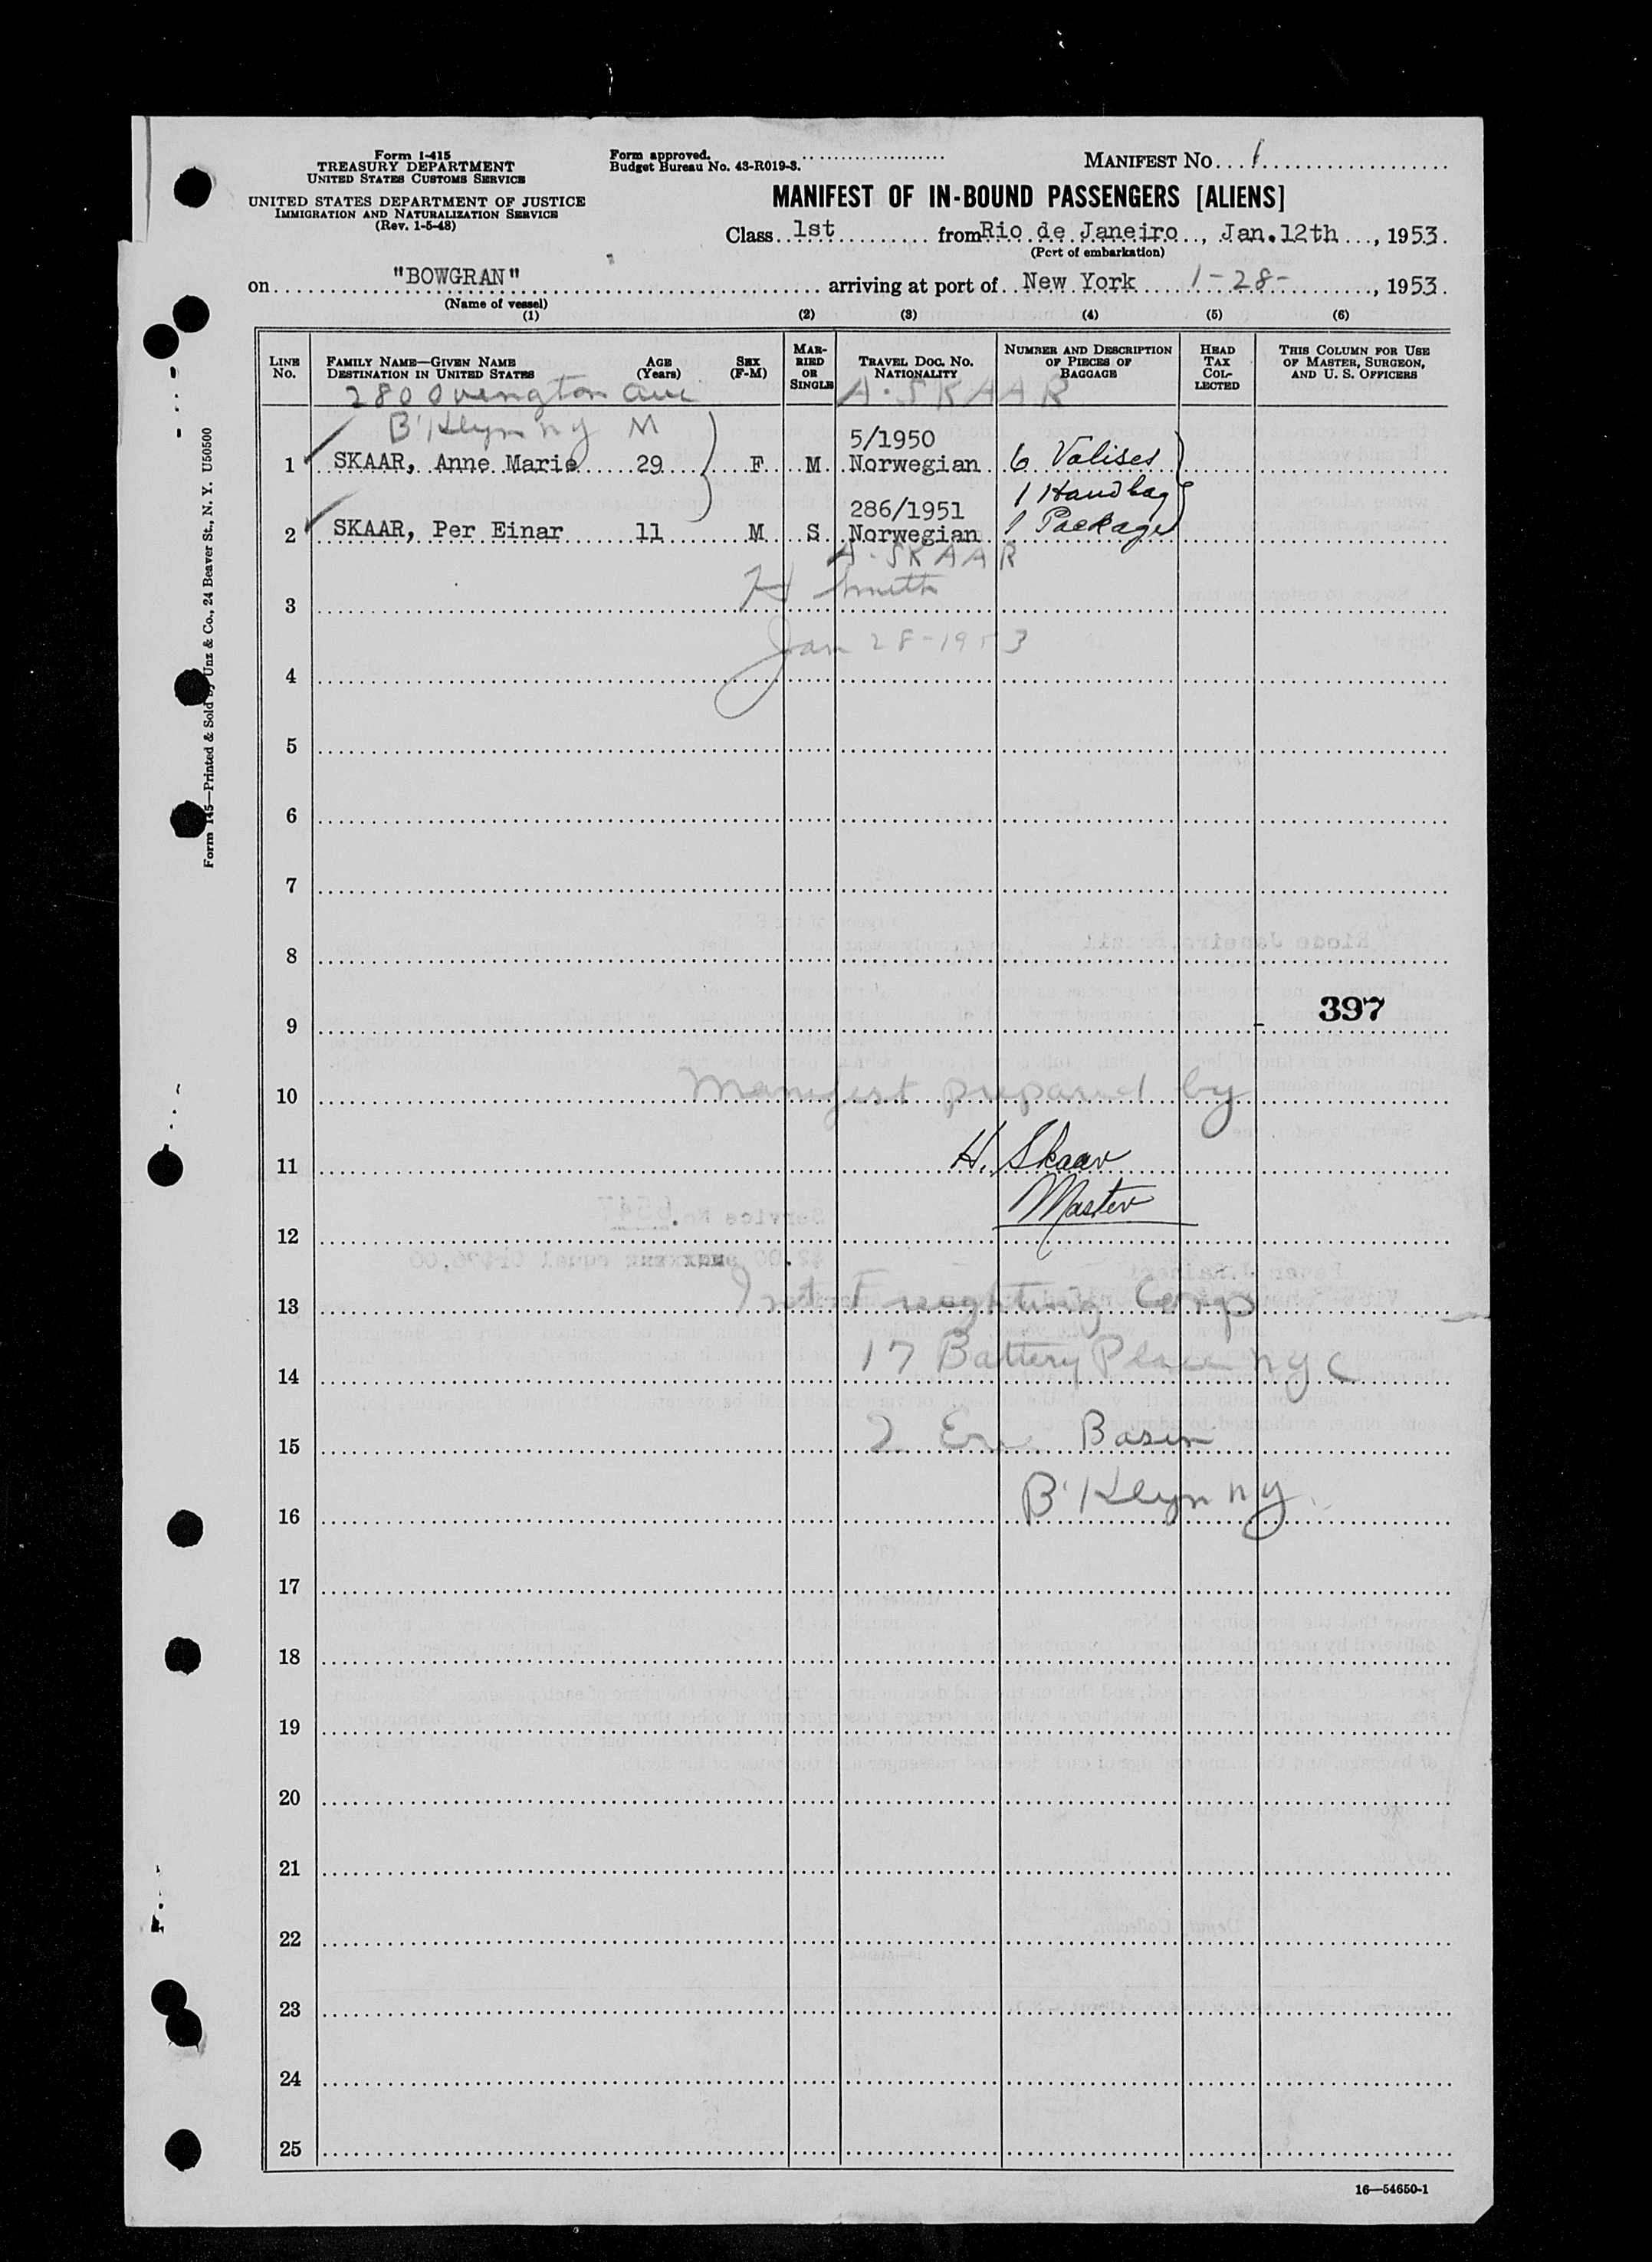 Form I-415
TREASURY DEPARTMENT
UNITED STATES CUSTOMS SERVICE
UNITED STATES DEPARTMENT OF JUSTICE
IMMIGRATION AND NATURALIZATION SERVICE
(Rev. 1-5-48)
Form approved.
Budget Bureau No. 43-R019-3.
MANIFEST NO. 1
MANIFEST OF IN-BOUND PASSENGERS [ALIENS]
Class 1st from Rio de Janeiro, Jan. 12th, 1953.
(Port of embarkation)
on "BOWGRAN" arriving at port of New York 1-28-, 1953.
(Name of vessel)
(1) (2) (3) (4) (5) (6)
LINE NO. FAMILY NAME—GIVEN NAME DESTINATION IN UNITED STATES AGE (Years) SEX (F-M) MARRIED OR SINGLE TRAVEL DOC. NO. NATIONALITY NUMBER AND DESCRIPTION OF PIECES OF BAGGAGE HEAD TAX COLLECTED THIS COLUMN FOR USE OF MASTER, SURGEON, AND U. S. OFFICERS
280 Ovington Ave A. SKAAR
B'Klyn NY M
5/1950
1 SKAAR, Anne Marie 29 F M Norwegian 6 Valises
286/1951 1 Handbag
2 SKAAR, Per Einar 11 M S Norwegian 1 Package
A. SKAAR
H Smith
3
Jan 28-1953
4
5
6
7
8
397
9
Manifest prepared by
10
H. Skaar
11
Master
12
Int Freighting Corp
13
17 Battery Place NYC
14
2 Erie Basin
15
B'Klyn NY
16
17
18
19
20
21
22
23
24
25
16—54650-1
Form 145—Printed & Sold by Unz & Co., 24 Beaver St., N. Y. U50500